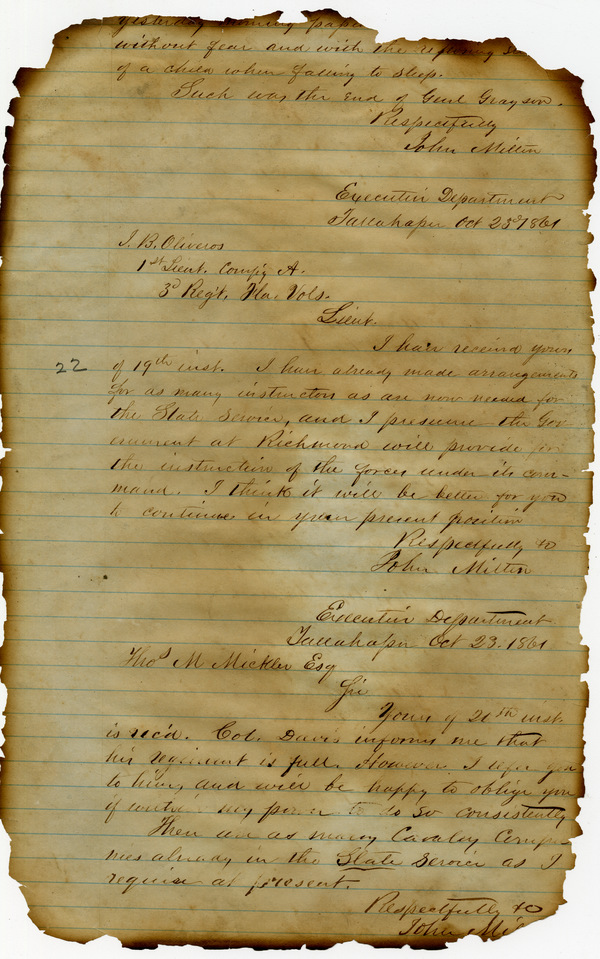 yesterday evening
without fear and with the
of a child when falling to sleep.
Such was the end of Genl Grayson.
Respectfully
John Milton
Executive Department
Tallahassee Oct 23d 1861
J. B. Oliveros
1st Lieut. Comp'y A.
3d Reg't. Fla. Vols.
Lieut.
I have received yours
22
of 19th inst. I have already made arrangements
for as many instructors as are now needed for
the State Service, and I presume the Gov
ernment at Richmond will provide for
the instruction of the forces under its com-
mand. I think it will be better for you
to continue in your present position
Respectfully &c
John Milton
Executive Department
Tallahassee Oct 23. 1861
Thos M Mickler Esq
Sir
Yours of 21th inst.
is rec'd. Col. Davis informs me that
his regiment is full. However I refer you
to him, and will be happy to oblige you
if within my power to do so consistently
There are as many Cavalry Compa-
nies already in the State Service as I
require at present.
Respectfully &c
John